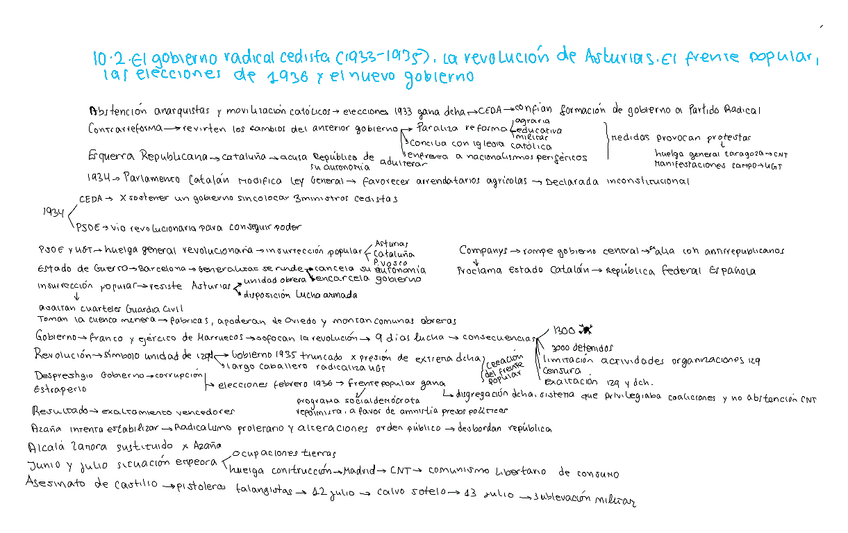 10.2. El gobierno radical cedista (1933-1935). La revolución de Asturias. El frente popular,
las elecciones de 1936 y el nuevo gobierno
Abstención anarquistas y movilización católicos → elecciones 1933 gana dcha → CEDA → confían formación de gobierno al Partido Radical
Contrarreforma → revierten los cambios del anterior gobierno
Paraliza reforma
agraria
educativa
militar
Concilia con iglesia católica
enfrenta a nacionalismos periféricos
medidas provocan protestas
huelga general Zaragoza → CNT
Manifestaciones campo → UGT
Esquerra Republicana → Cataluña → acusa República de adulterar
su autonomía
1934 → Parlamento Catalán modifica Ley General → favorecer arrendatarios agrícolas → Declarada inconstitucional
1934
CEDA → X sostener un gobierno sin colocar 3 ministros cedistas
PSOE → vía revolucionaria para conseguir poder
PSOE y UGT → huelga general revolucionaria → insurrección popular
Asturias
Cataluña
P. vasco
Companys → rompe gobierno central → alía con antirrepublicanos
Proclama Estado Catalán → República Federal Española
Estado de Guerra → Barcelona → Generalitat se runde
cancela su autonomía
encarcela gobierno
insurrección popular → resiste Asturias
unidad obrera
disposición lucha armada
asaltan cuarteles Guardia Civil
Toman la cuenca minera → fábricas, apoderan de Oviedo y montan comunas obreras
Gobierno → Franco y ejército de Marruecos → sofocan la revolución → 9 días lucha → consecuencias
1300
3000 detenidos
limitación actividades organizaciones izq
Censura
exaltación izq y dch.
Revolución → símbolo unidad de izqd
Gobierno 1935 truncado x presión de extrema dcha
largo caballero radicaliza UGT
creación del frente popular
Desprestigio Gobierno → corrupción
Estraperlo
elecciones febrero 1936 → frente popular gana
programa socialdemócrata
reformista, a favor de amnistía presos políticos
disgregación dcha, sistema que privilegiaba coaliciones y no abstención CNT
Resultado → exaltamiento vencedores
Azaña intenta estabilizar → Radicalismo proletario y alteraciones orden público → desbordan república
Alcalá Zamora sustituido x Azaña
Junio y julio situación empeora
ocupaciones tierras
huelga construcción → Madrid → CNT → comunismo libertario de consumo
Asesinato de Castillo → pistoleros falangistas → 12 julio → Calvo Sotelo → 13 julio → sublevación militar